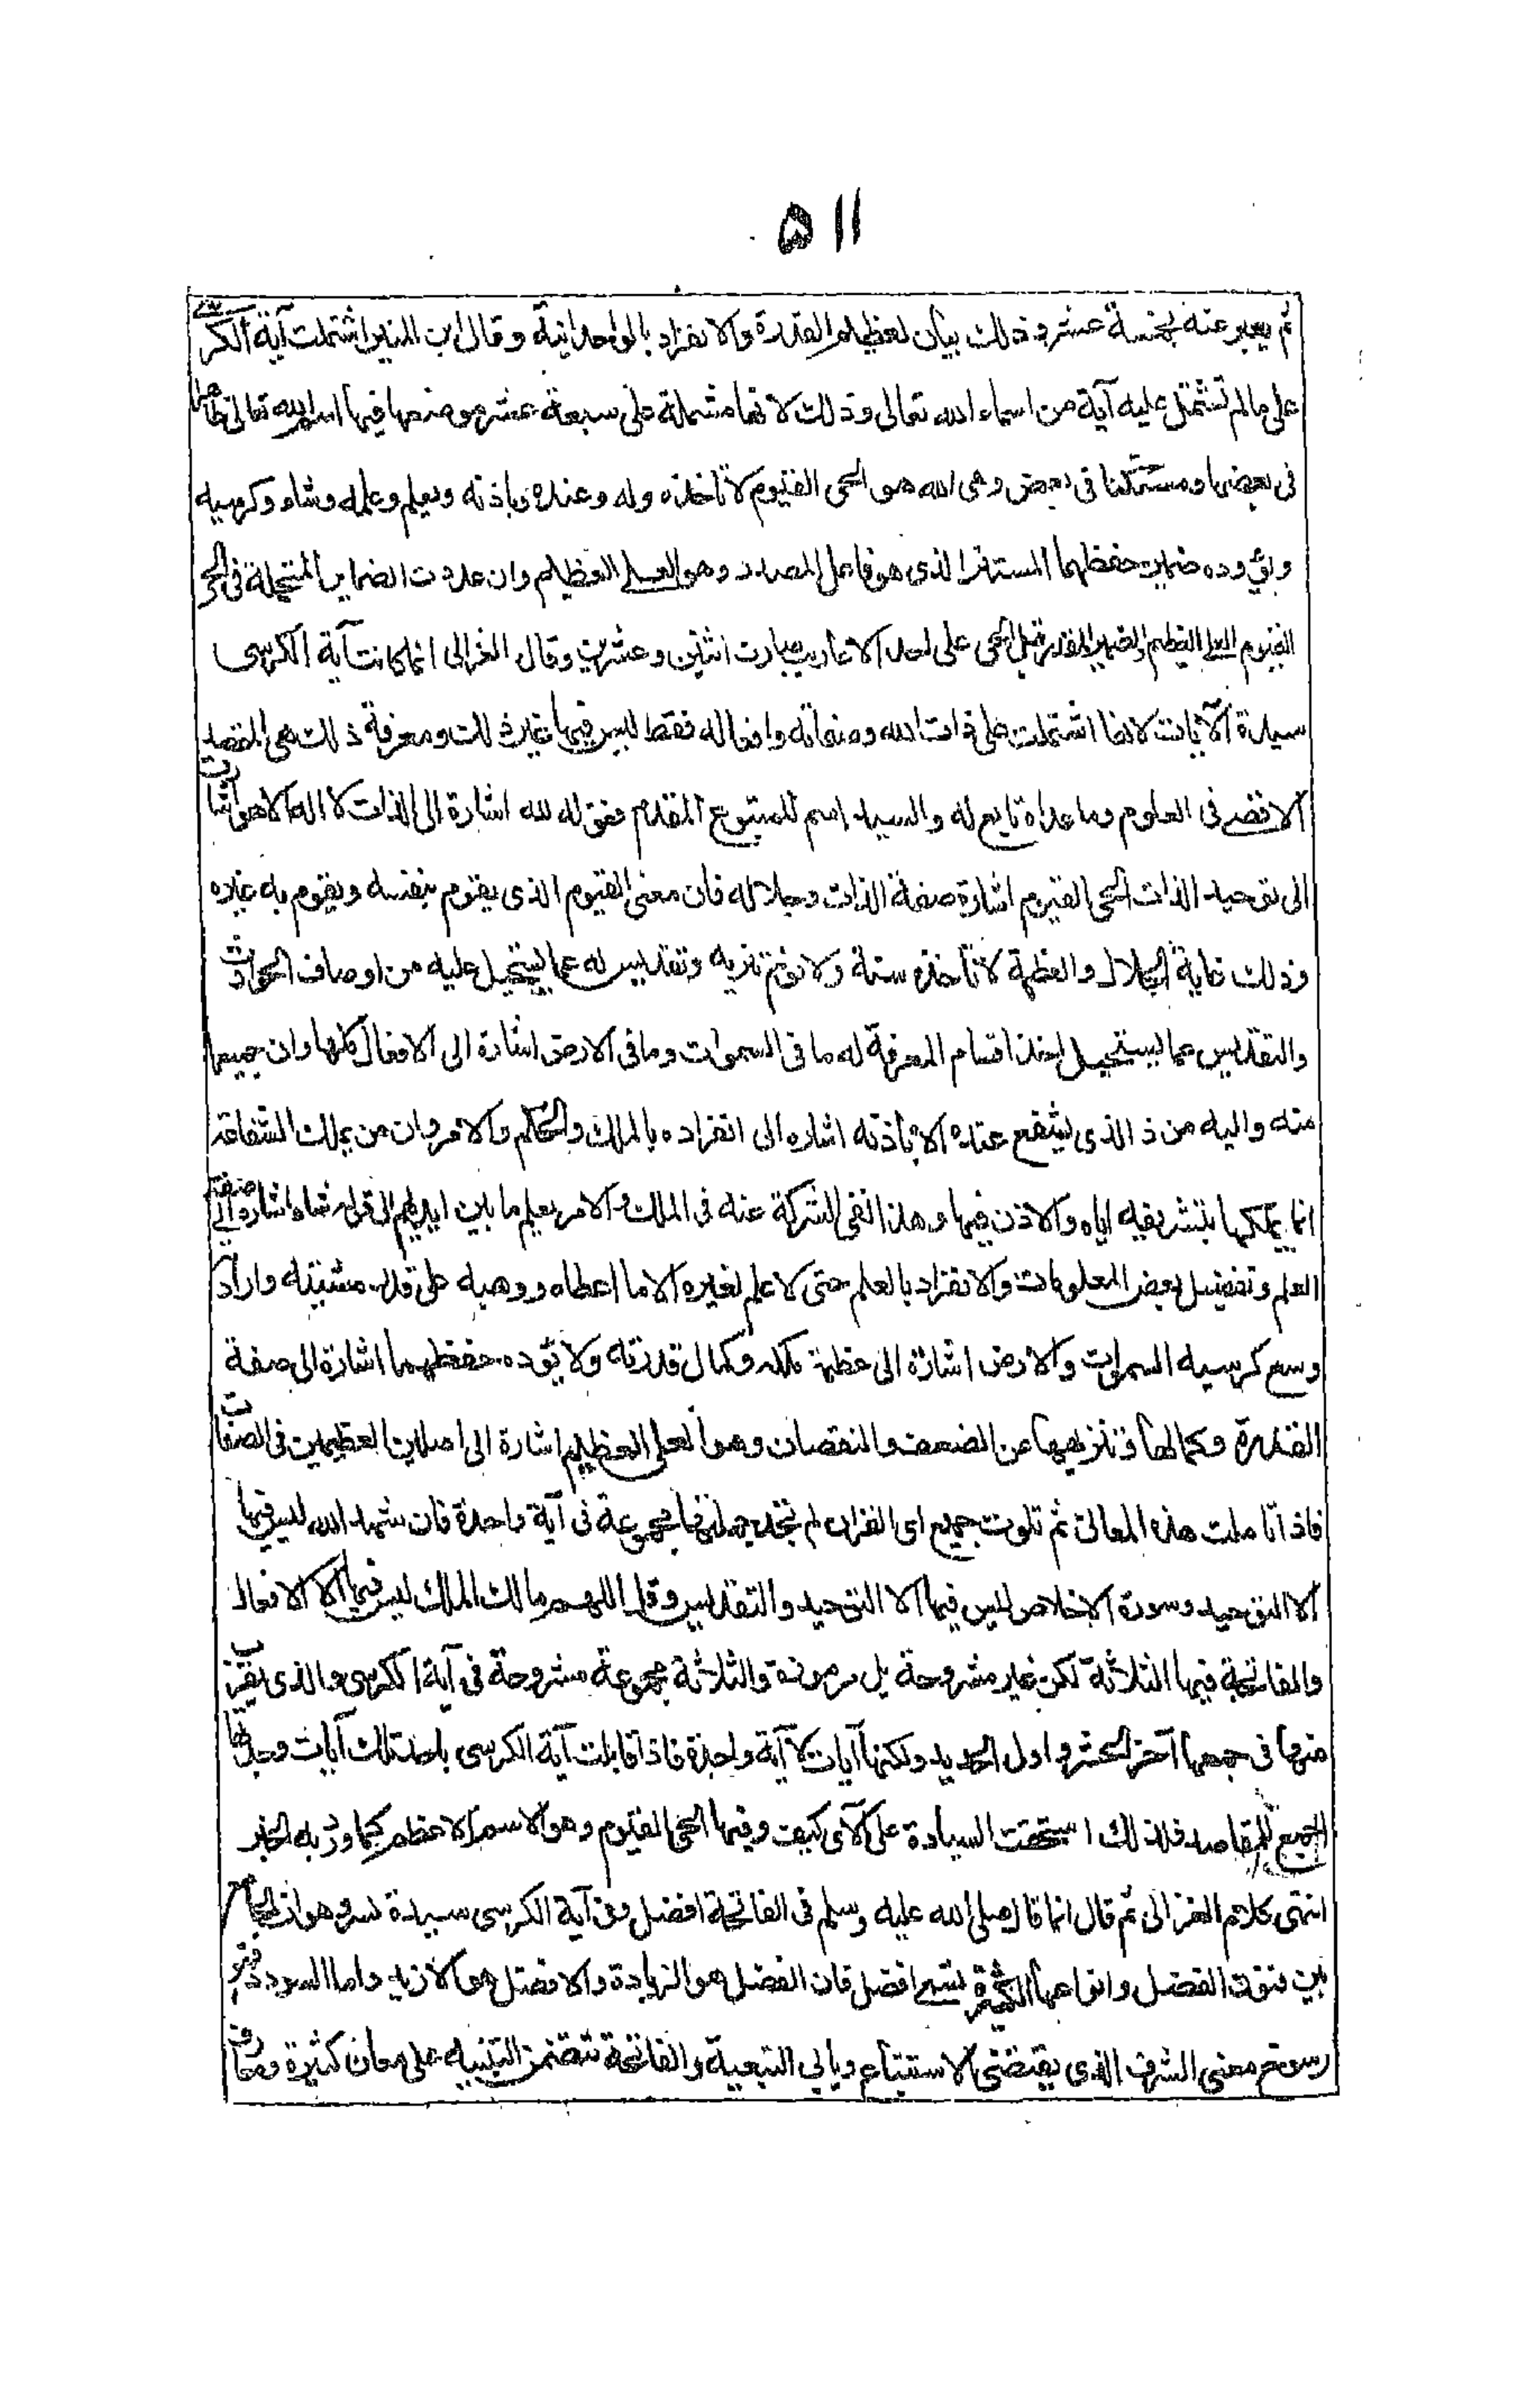 ٥١١
ثم يعبر عنه بخمسة عشر وذلك بيان لعظيم القدرة والانفراد بالواحدانية وقال ابن المنير اشتملت آية الكرسي
على مالم تشتمل عليه آية من اسماء الله تعالى وذلك لانها مشملة على سبعة عشر موضعها فيها اسم الله تعالى ظاهرا
فى بعضها ومستكنا فى بعض وهى الله هو الحى القيوم لا تأخذه وله وعنده وباذنه ويعلم وعلمه وشاء وكرسيه
ويؤوده ضمير حفظهما المستتر الذى هو فاعل المصدر وهو العلى العظيم وان عددت الضماير المتحملة فى الحى
القيوم العلى العظيم والضمير المقدر قبل الحى على احد الاعاريب صارت اثنين وعشرين وقال الغزالى انما كانت آية الكرسى
سيدة الآيات لانها اشتملت على ذات الله وصفاته وافعاله فقط ليس فيها غير ذلك ومعرفة ذلك هى المقصد
الاقصى فى العلوم وما عداه تابع له والسيد اسم للمتبوع المقدم فقوله الله اشارة الى الذات لا اله الا هو اشارت
الى توحيد الذات الحى القيوم اشارة صفة الذات وجلاله فان معنى القيوم الذى يقوم بنفسه ويقوم به غيره
وذلك غاية الجلال والعظمة لا تأخذه سنة ولا نوم تنزيه وتقديس له عما يستحيل عليه من اوصاف الحوادث
والتقديس عما يستحيل احد اقسام المعرفة له ما فى السموات وما فى الارض اشارة الى الافعال كلها وان جميعها
منه واليه من ذ الذى يشفع عنده الا باذنه اشاره الى انفراده بالملك والحكم والامر وان من يملك الشفاعة
انما يملكها بتشريفه اياه والاذن فيها وهذا نفى الشركة عنه فى الملك والامر يعلم ما بين ايديهم الى قوله شاء اشارة الى صفة
العلم وتفضيل بعض المعلومات والانفراد بالعلم حتى لا علم لغيره الا ما اعطاه ووهبه على قدر مشيته وارادته
وسع كرسيه السموات والارض اشارة الى عظمة ملكه وكمال قدرته ولا يؤده حفظهما اشارة الى صفة
القدرة وكمالها وتنزيهها عن الضعف والنقصان وهو العلى العظيم اشارة الى اصلين العظيمين فى الصفات
فاذا تاملت هذه المعانى ثم تلوت جميع اى القران لم تجد جملتها مجموعة فى آية واحدة فان شهد الله ليس فيها
الا التوحيد وسورة الاخلاص ليس فيها الا التوحيد والتقديس وقل اللهم مالك الملك ليس فيها الا الافعال
والفاتحة فيها الثلاثة لكن غير مشروحة بل مرموزة والثلاثة مجموعة مشروحة فى آية الكرسى والذى يقرب
منها فى جمعها آخر الحشر واول الحديد ولكنها آيات لا آية واحدة فاذا قابلت آية الكرسى باحد تلك آيات وجدتها
الجميع للمقاصد فلذلك استحقت السيادة على الآى كيف وفيها الحى القيوم وهو الاسم الاعظم كما ورد به الخبر
انتهى كلام الغزالى ثم قال انما قال صلى الله عليه وسلم فى الفاتحة افضل وفى آية الكرسى سيدة لسر وهو ان الجامع
بين فنون الفضل وانواعها الكثيرة يسمى افضل فان الفضل هو الزيادة والافضل هو الازيد واما السودد فهو
رسوخ معنى الشرف الذى يقتضى الاستتباع ويابى التبعية والفاتحة تتضمن التنبيه على معان كثيرة ومعارف